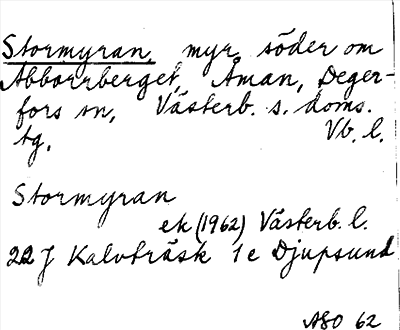 Stormyran, myr söder om
Abborrberget, Åman, Deger-
fors sn, Västerb. s. doms.
tg. Vb. l.
Stormyran
ek (1962) Västerb. l.
22 J Kalvträsk 1 e Djupsund
ASO 62